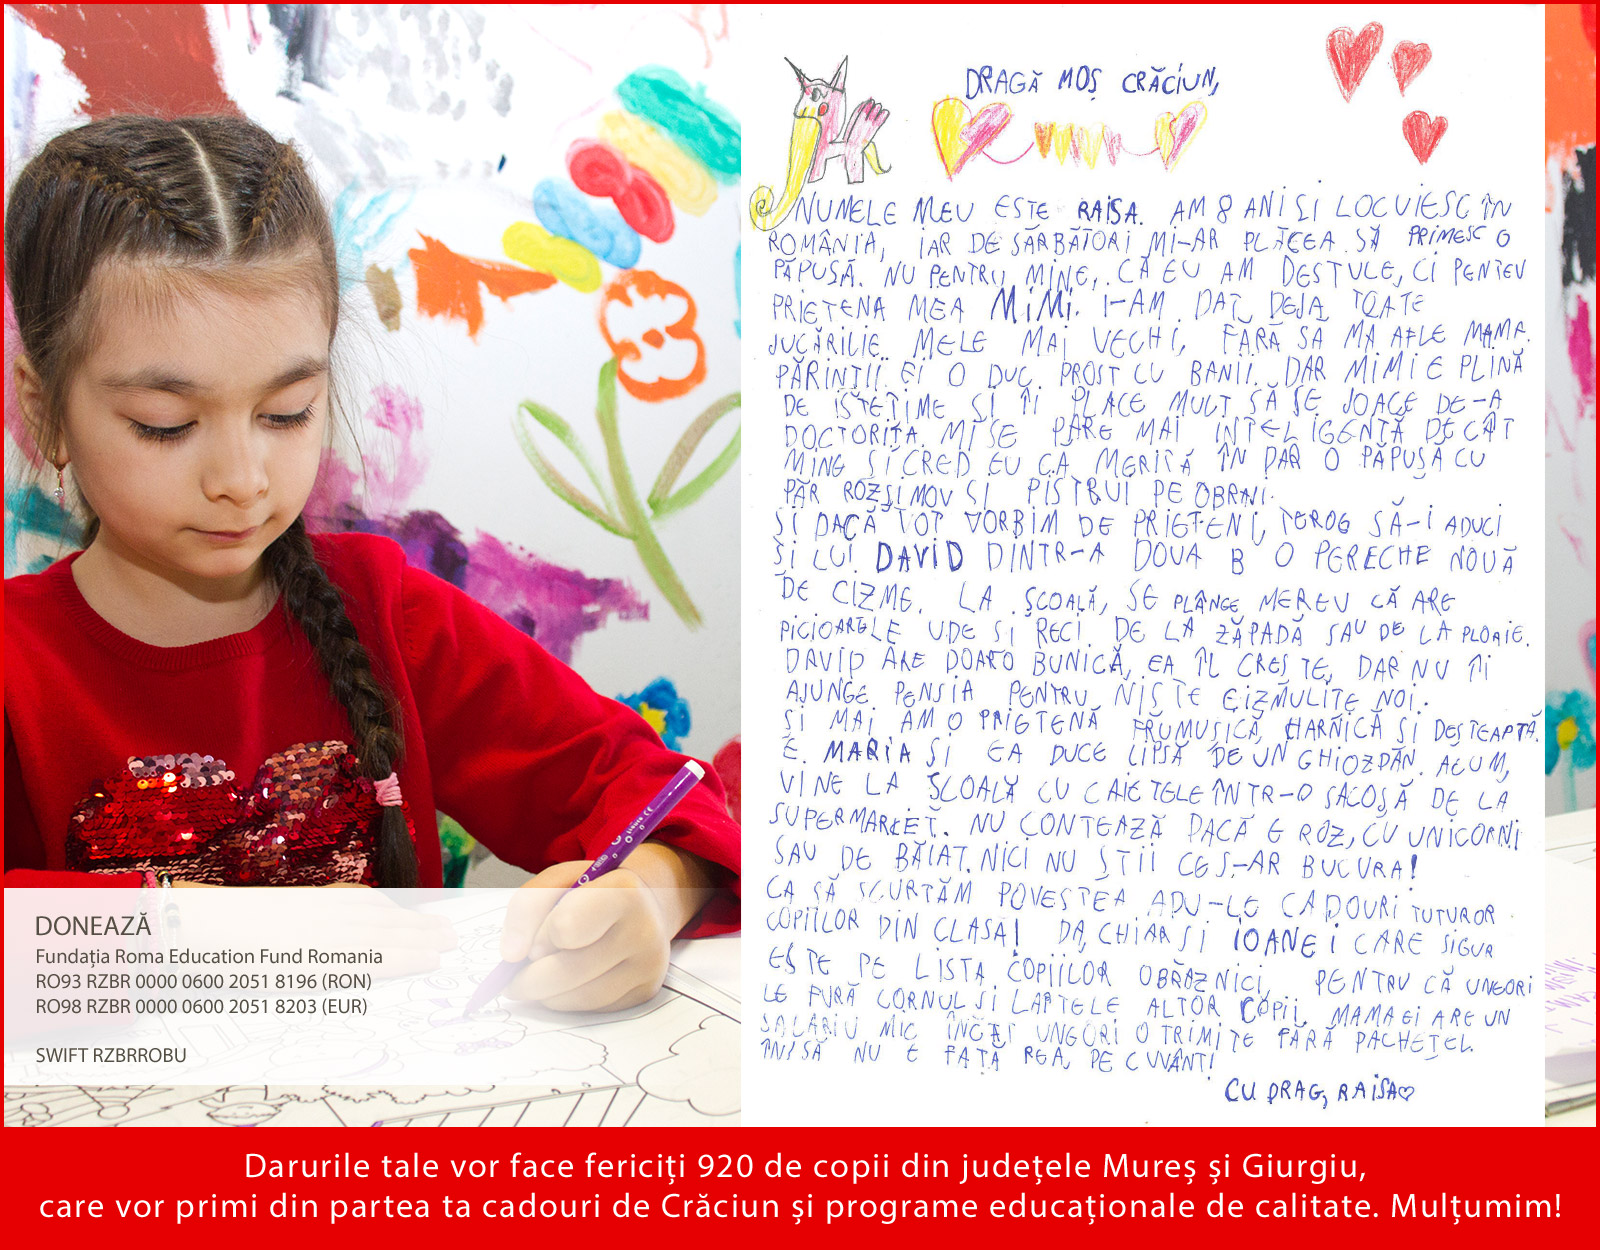 DRAGĂ MOȘ CRĂCIUN,
NUMELE MEU ESTE RAISA. AM 8 ANI ȘI LOCUIESC ÎN
ROMÂNIA, IAR DE SĂRBĂTORI MI-AR PLĂCEA SĂ PRIMESC O
PĂPUȘĂ. NU PENTRU MINE, CĂ EU AM DESTULE, CI PENTRU
PRIETENA MEA MIMI. I-AM DAT DEJA TOATE
JUCĂRILIE MELE MAI VECHI, FĂRĂ SA MA AFLE MAMA.
PĂRINȚII EI O DUC PROST CU BANII. DAR MIMI E PLINĂ
DE ISTEȚIME ȘI ÎI PLACE MULT SĂ SE JOACE DE-A
DOCTORIȚA. MI SE PARE MAI INTELIGENTĂ DECÂT
MINE ȘI CRED EU CĂ MERITĂ ÎN DAR O PĂPUȘA CU
PĂR ROZ ȘI MOV ȘI PISTRUI PE OBRAJI.
ȘI DACĂ TOT VORBIM DE PRIETENI, TE ROG SĂ-I ADUCI
ȘI LUI DAVID DINTR-A DOUA B O PERECHE NOUĂ
DE CIZME. LA ȘCOALĂ, SE PLÂNGE MEREU CĂ ARE
PICIOARELE UDE ȘI RECI DE LA ZĂPADĂ SAU DE LA PLOAIE.
DAVID ARE DOAR O BUNICĂ, EA ÎL CREȘTE, DAR NU ÎI
AJUNGE PENSIA PENTRU NIȘTE CIZMULIȚE NOI.
ȘI MAI AM O PRIETENĂ FRUMUSICĂ, HARNICĂ ȘI DEȘTEAPTĂ.
E MARIA ȘI EA DUCE LIPSĂ DE UN GHIOZDAN. ACUM,
VINE LA ȘCOALĂ CU CAIETELE ÎNTR-O SACOȘĂ DE LA
SUPERMARKET. NU CONTEAZĂ DACĂ E ROZ, CU UNICORNI
SAU DE BĂIAT. NICI NU ȘTII CE S-AR BUCURA!
CA SĂ SCURTĂM POVESTEA ADU-LE CADOURI TUTUROR
COPIILOR DIN CLASĂ! DA, CHIAR ȘI IOANEI CARE SIGUR
ESTE PE LISTA COPIILOR OBRAZNICI, PENTRU CĂ UNEORI
LE FURĂ CORNUL ȘI LAPTELE ALTOR COPII. MAMA EI ARE UN
SALARIU MIC ÎNCÂT UNEORI O TRIMITE FĂRĂ PACHEȚEL.
ÎNSĂ NU E FATĂ REA, PE CUVÂNT!
CU DRAG, RAISA
DONEAZĂ
Fundația Roma Education Fund Romania
RO93 RZBR 0000 0600 2051 8196 (RON)
RO98 RZBR 0000 0600 2051 8203 (EUR)
SWIFT RZBRROBU
Darurile tale vor face fericiți 920 de copii din județele Mureș și Giurgiu,
care vor primi din partea ta cadouri de Crăciun și programe educaționale de calitate. Mulțumim!